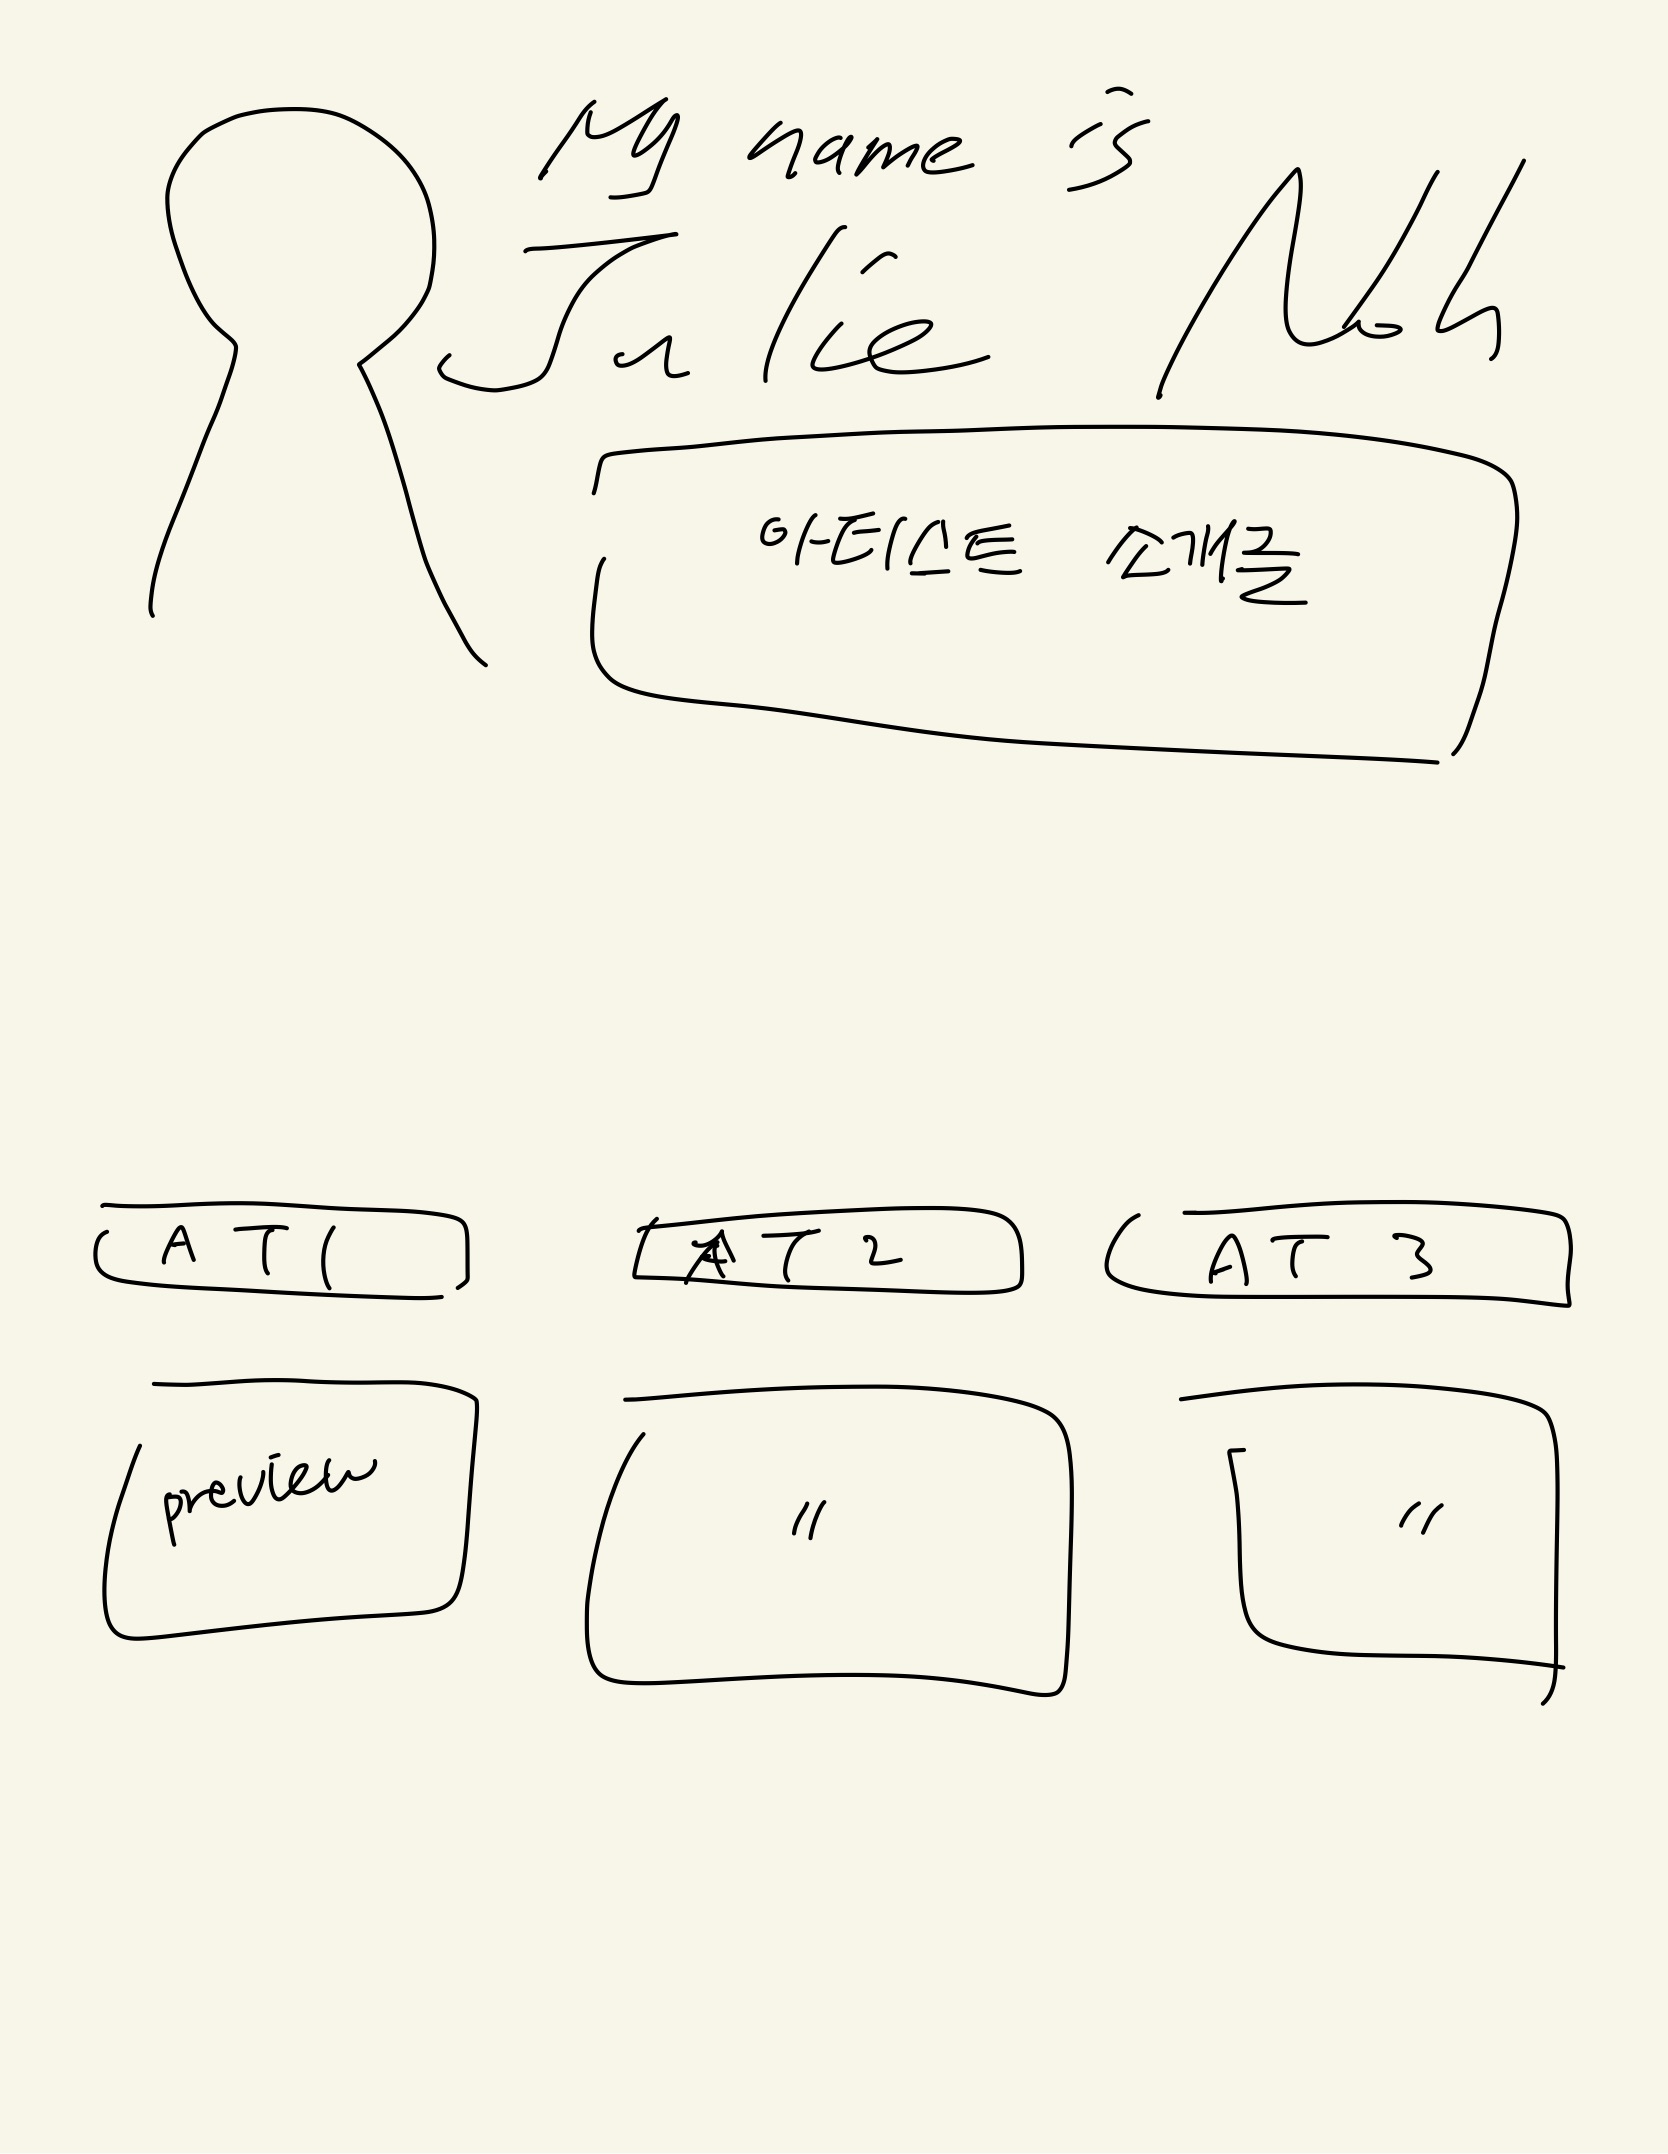 My name is
Julie Noh
아티스트 소개글
AT 1
AT 2
AT 3
preview
〃
〃